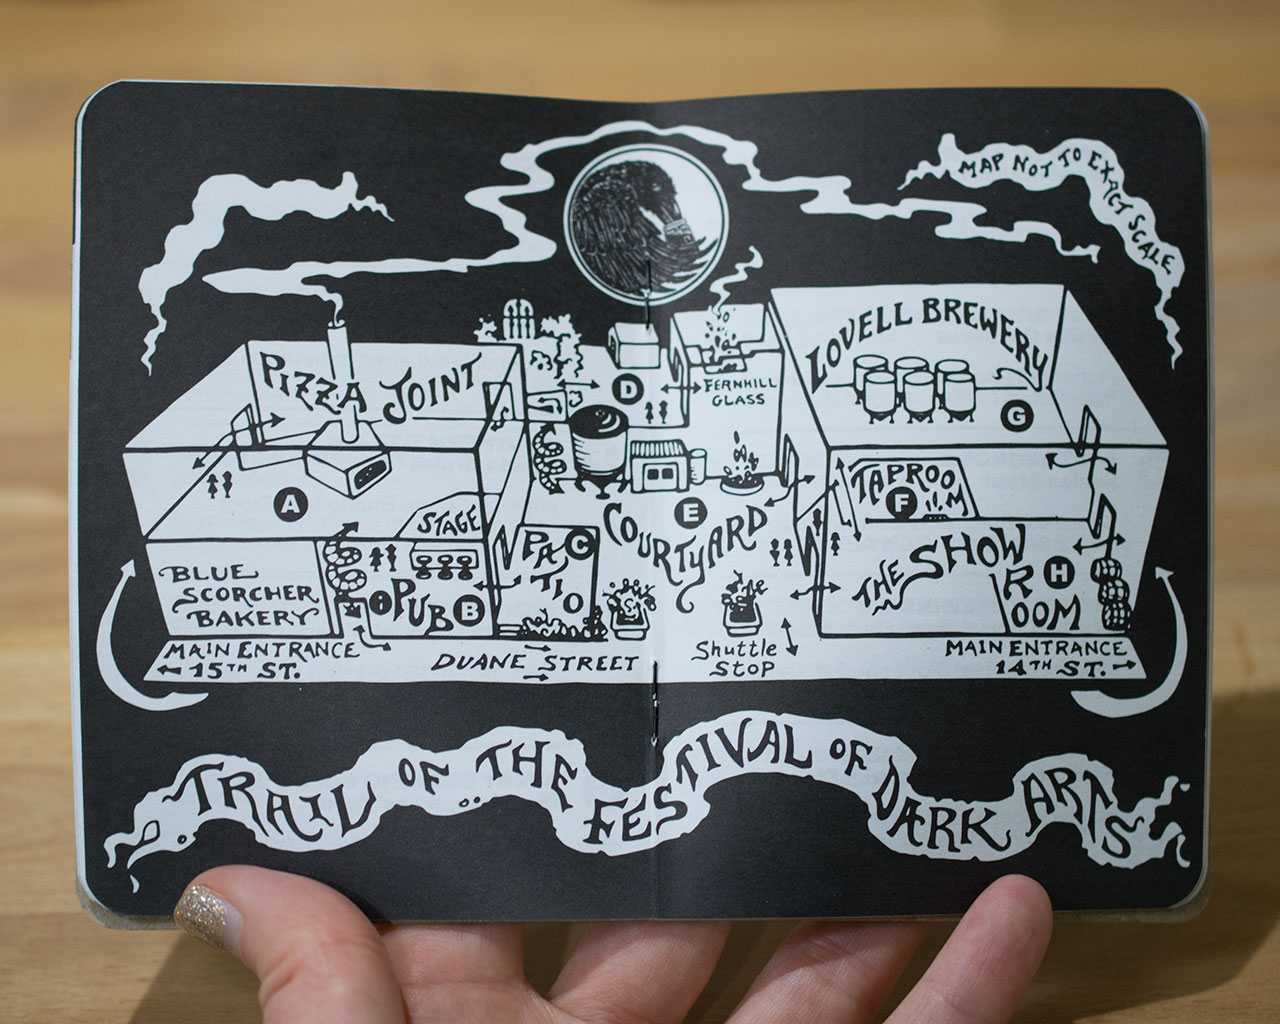 MAP NOT TO EXACT SCALE
PIZZA JOINT
LOVELL BREWERY
D
FERNHILL
GLASS
G
A
STAGE
E
COURTYARD
TAPROOM
F
BLUE
SCORCHER
BAKERY
PUB B
PATIO
C
THE SHOW
ROOM
H
MAIN ENTRANCE
15TH ST.
DUANE STREET
Shuttle
Stop
MAIN ENTRANCE
14TH ST.
TRAIL OF THE FESTIVAL OF DARK ARTS